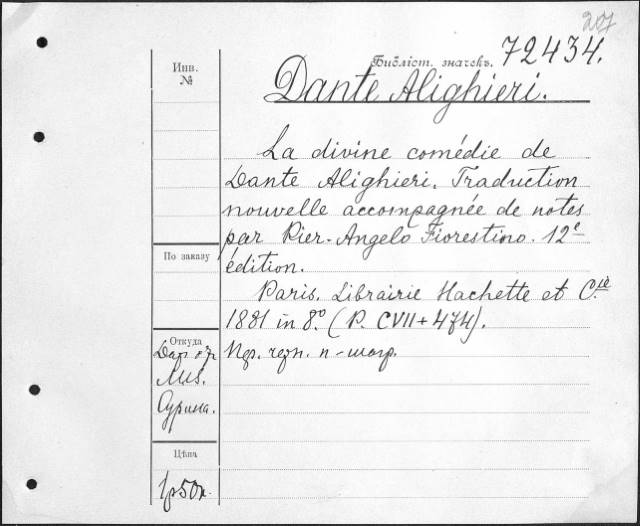 207
Библіот. значекъ. 72434.
Инв.
№
Dante Alighieri.
La divine comédie de
Dante Alighieri. Traduction
nouvelle accompagnée de notes
par Pier-Angelo Fiorestino. 12e
édition.
По заказу
Paris. Librairie Hachette et Cie
1881 in 8o. (P. CVII+474).
Откуда
Даръ
Цѣна
1р50к.